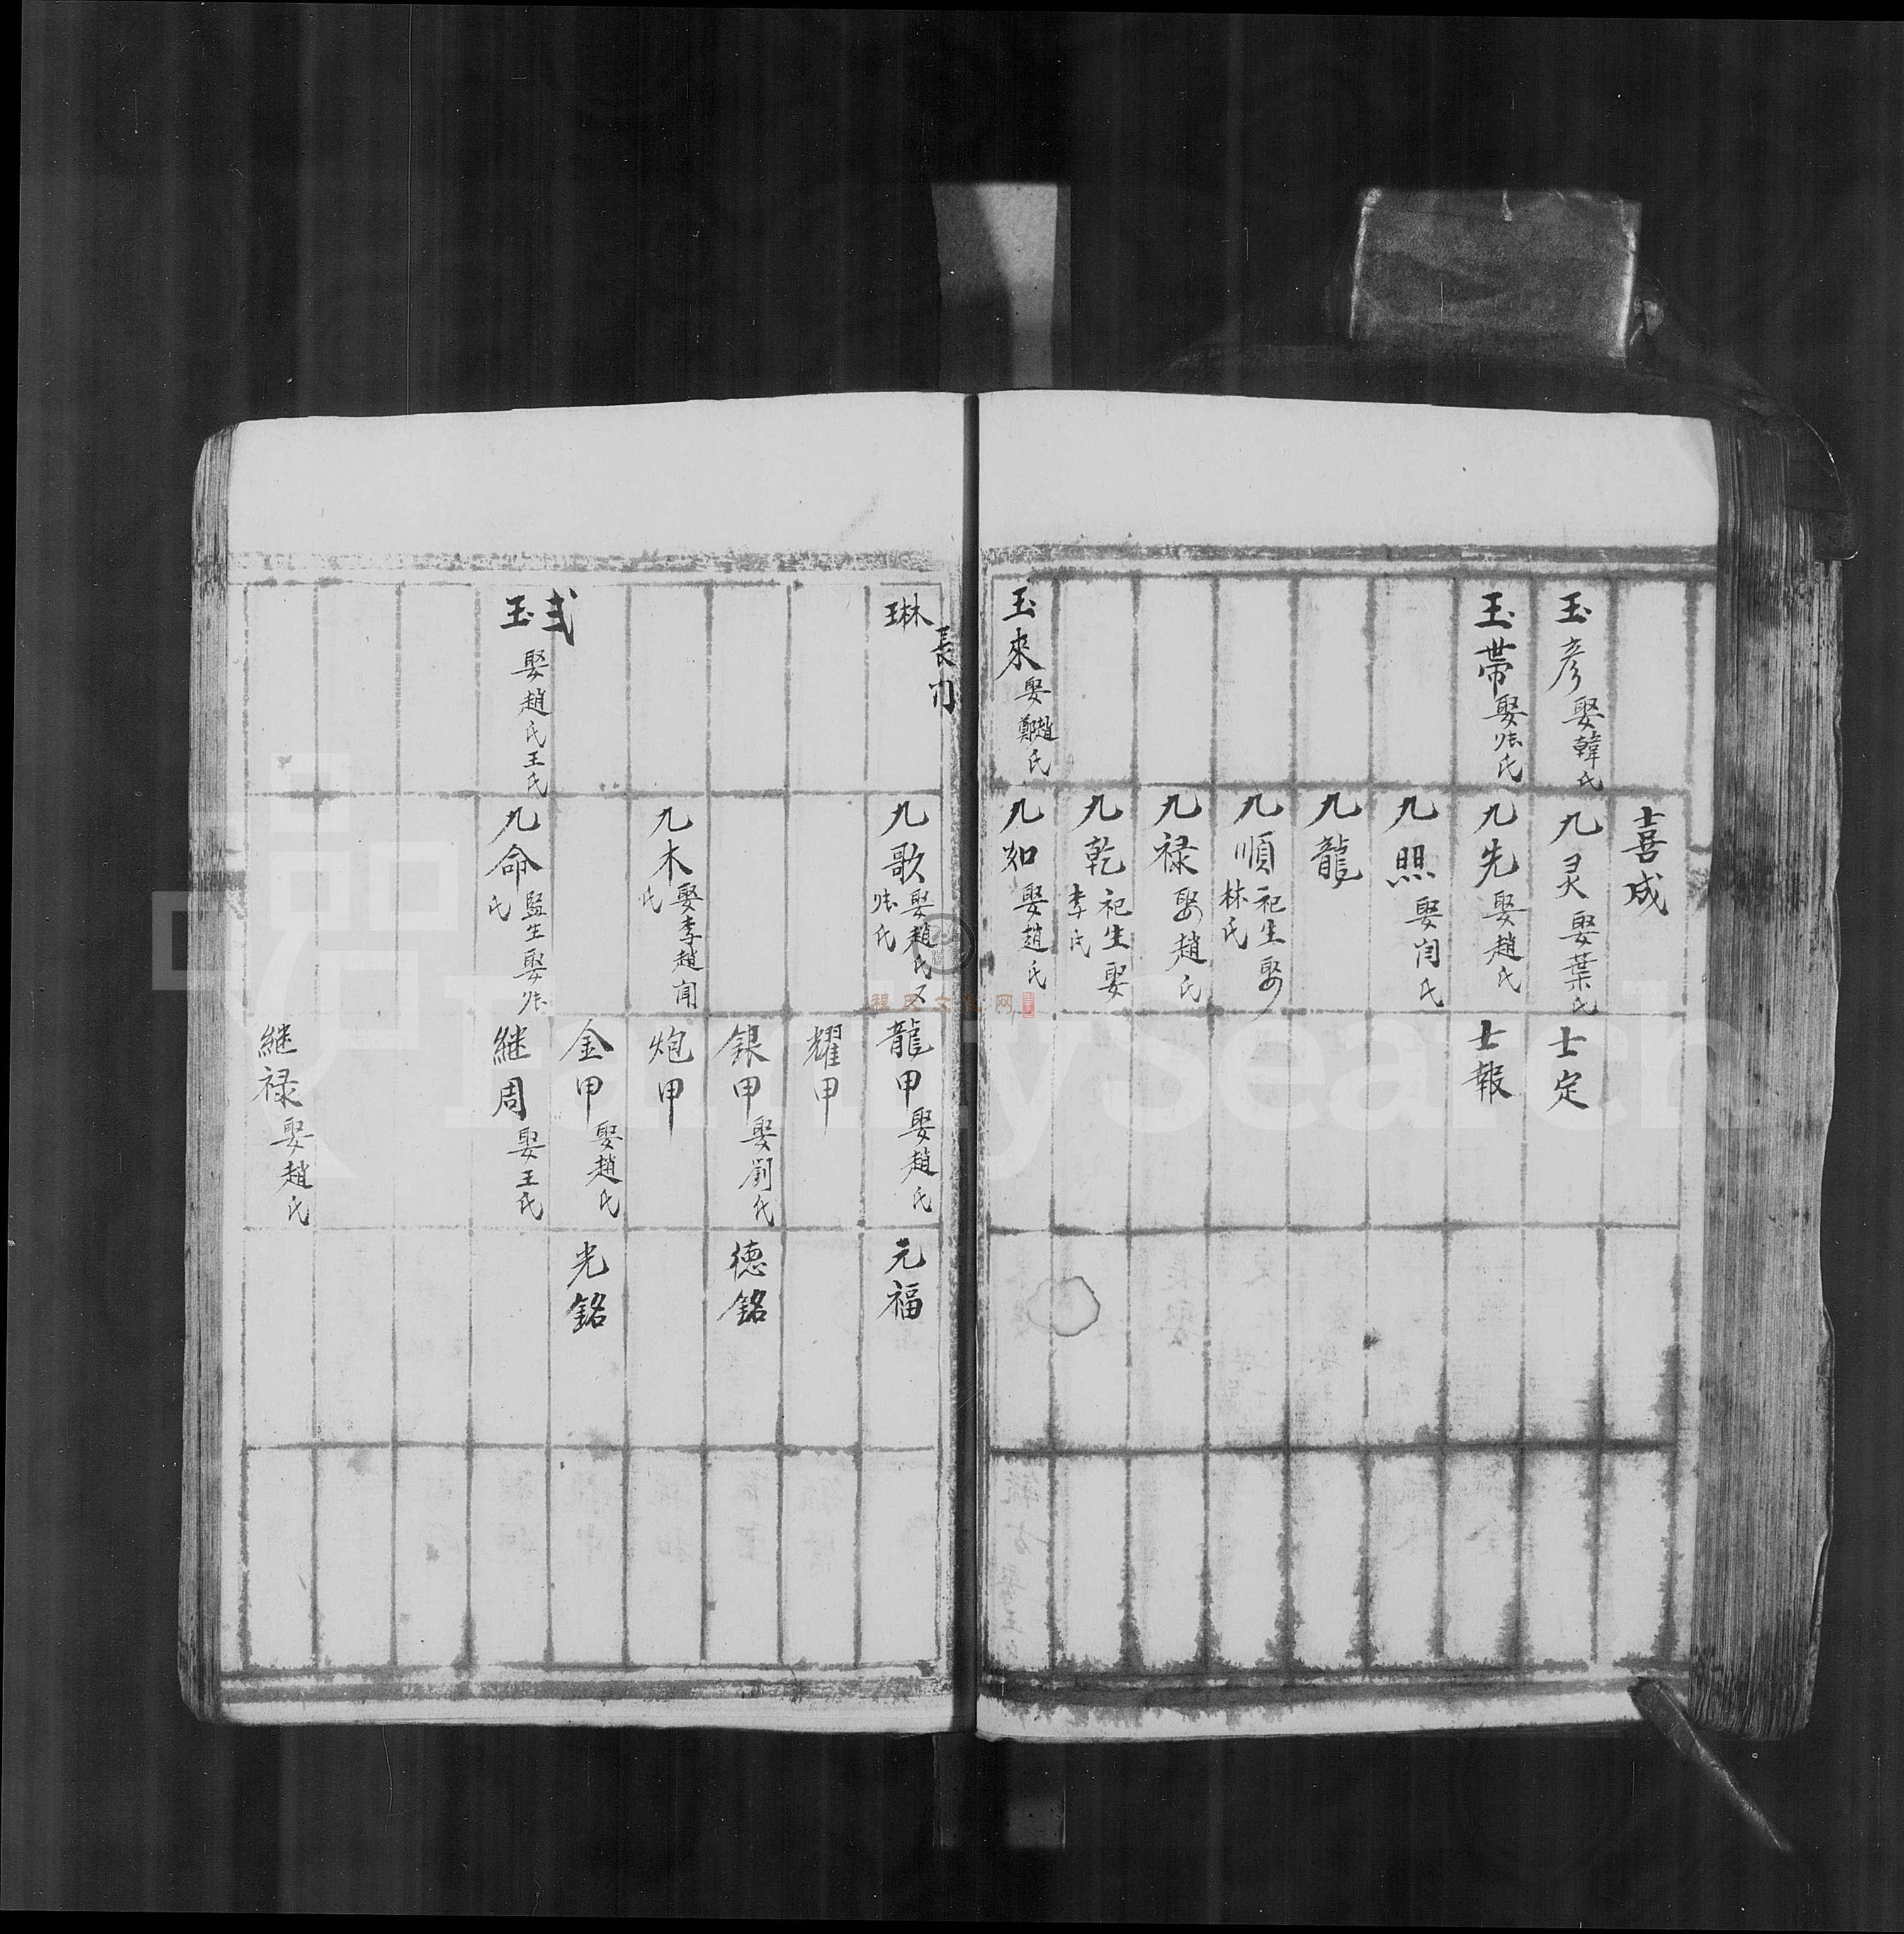 喜成
玉彦 娶韓氏
九灵 娶葉氏
士定
玉帯 娶张氏
九先 娶趙氏
士報
九照 娶闫氏
九龍
九順 祀生娶林氏
九禄 娶趙氏
九乾 祀生娶李氏
玉來 娶趙鄭氏
九如 娶趙氏
長门
琳
九歌 娶趙氏又张氏
龍甲 娶趙氏
元福
耀甲
銀甲 娶劉氏
德銘
九木 娶李趙闻氏
炮甲
金甲 娶趙氏
光銘
弍
玉 娶趙氏王氏
九命 監生娶张氏
継周 娶王氏
継禄 娶趙氏
FamilySearch